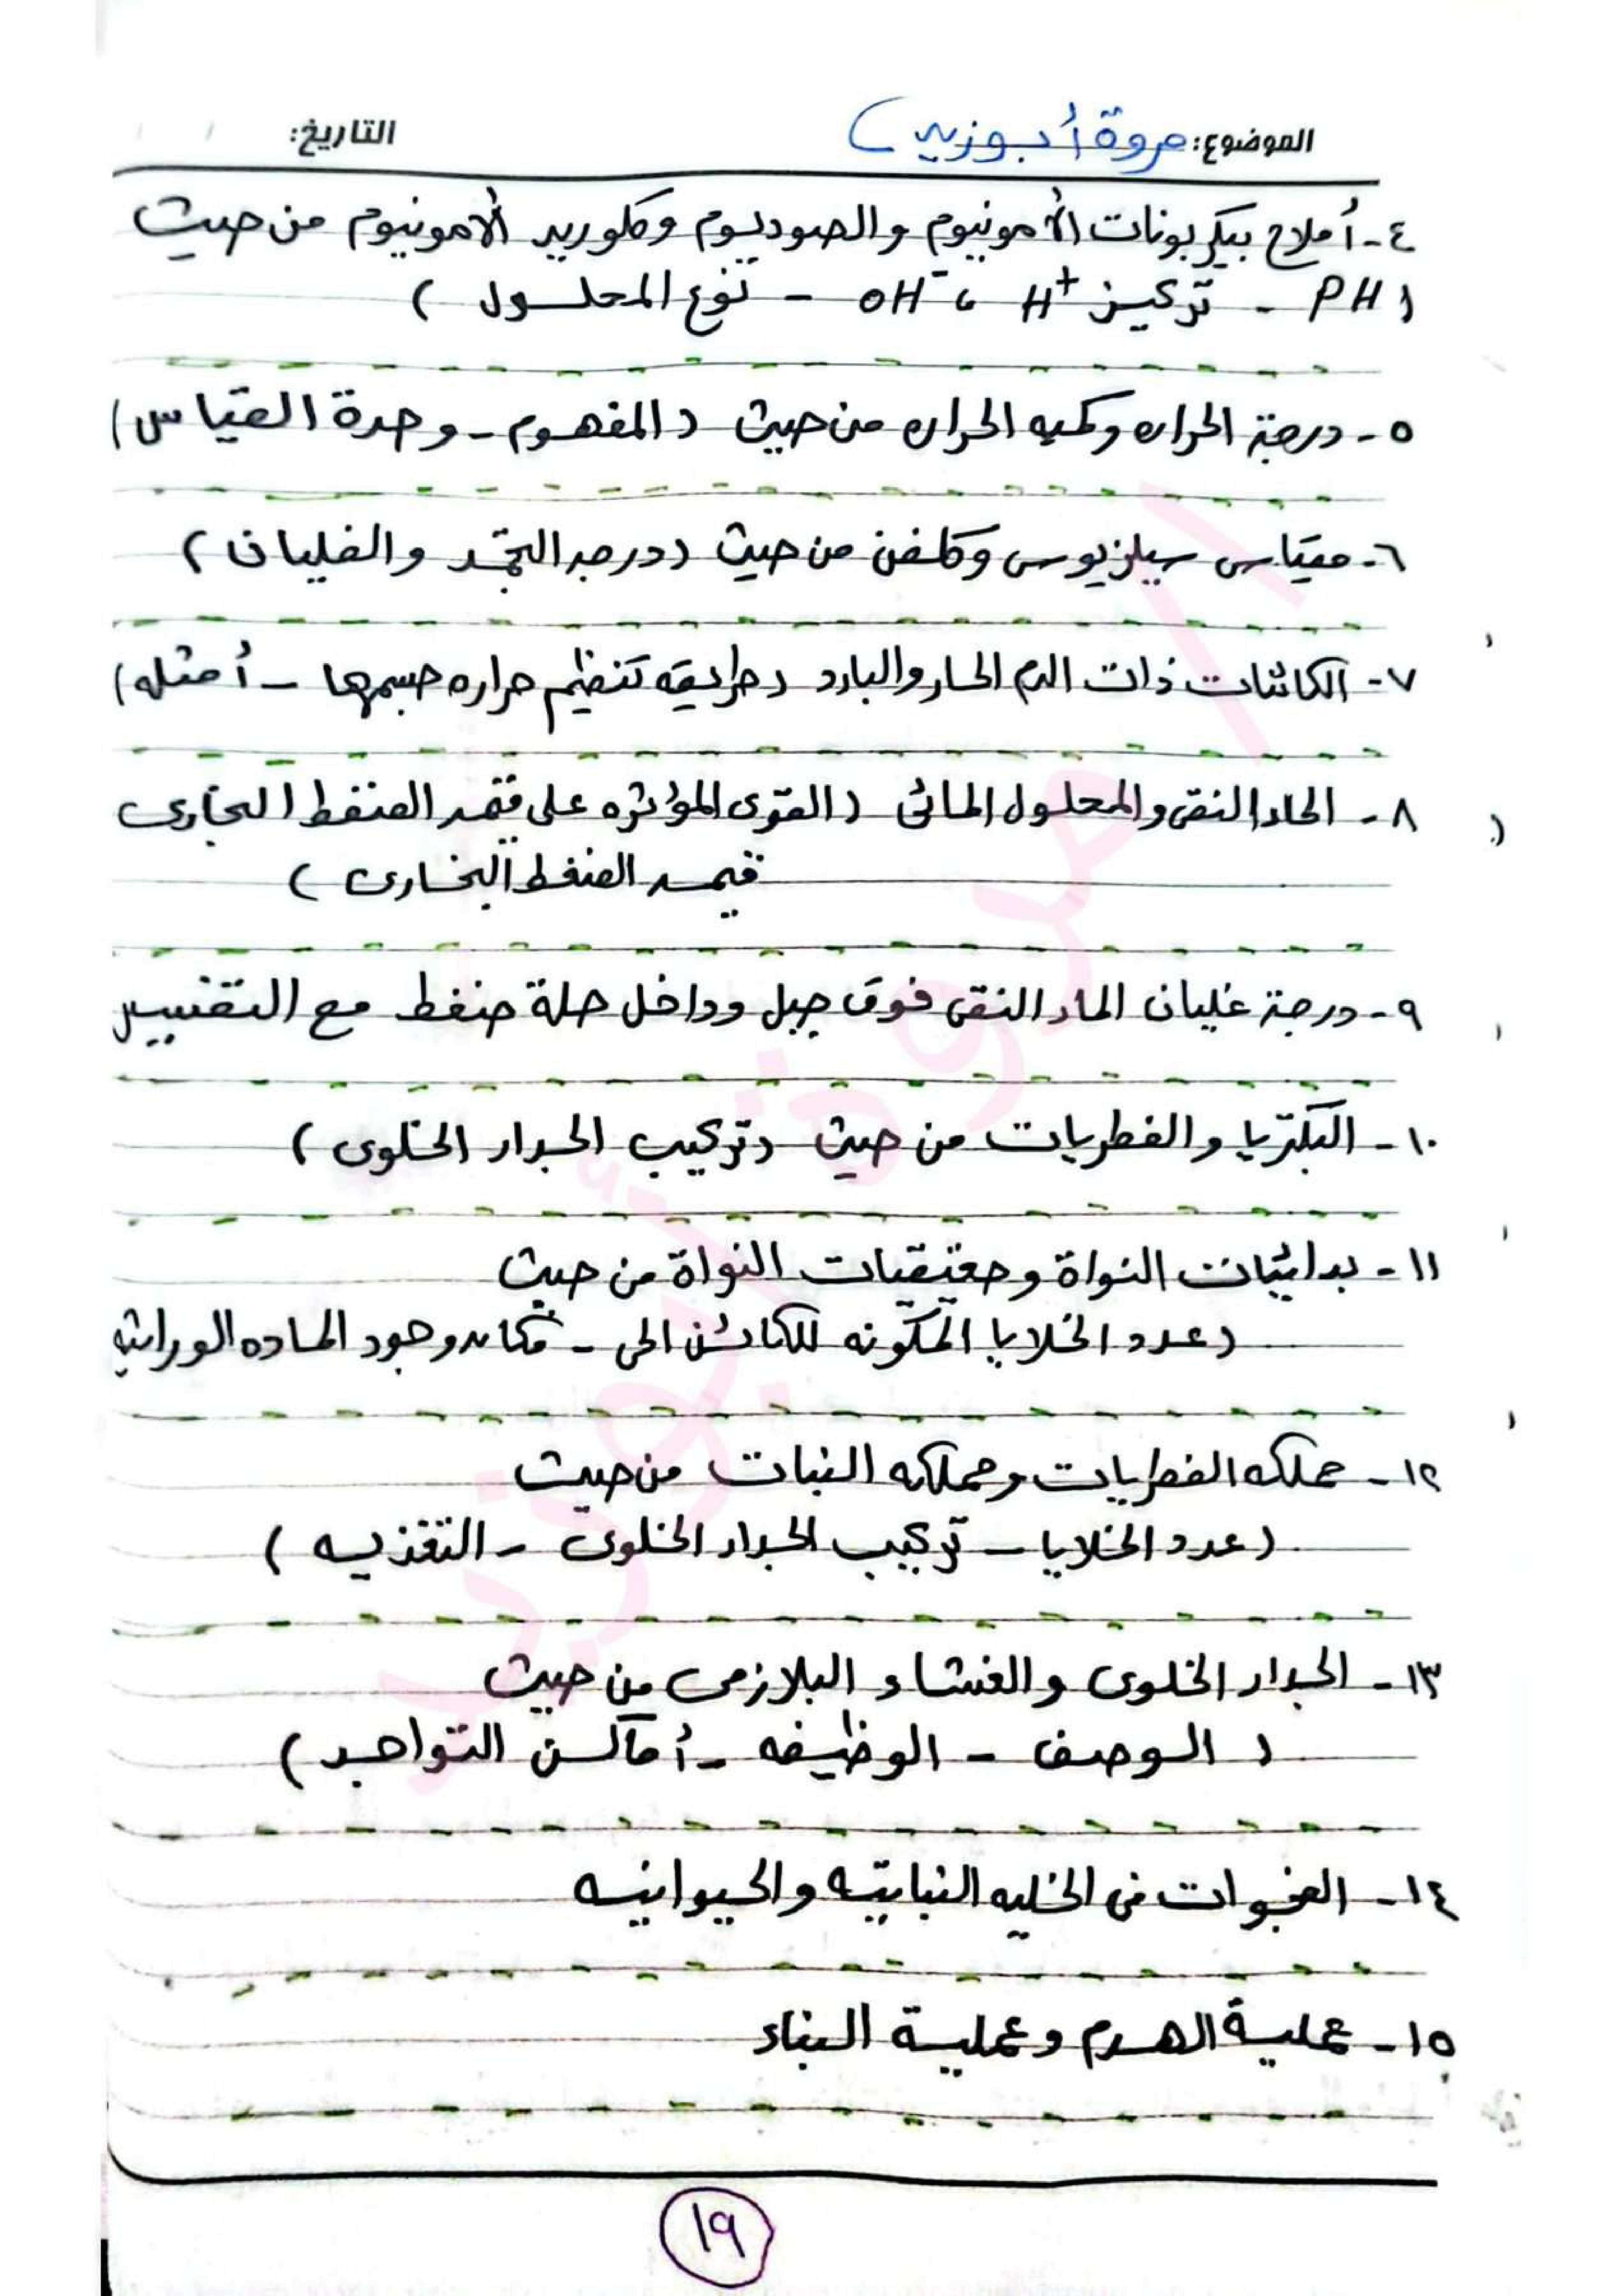 الموضوع: مروة أبوزيد
التاريخ: / /
٤- أملاح بيكربونات الأمونيوم والصوديوم وكلوريد الأمونيوم من حيث
( PH - تركيز H⁺ ، OH⁻ - نوع المحلول )
٥- درجة الحراره وكميه الحراره من حيث ( المفهوم - وحدة القياس )
٦- مقياس سيلزيوس وكلفن من حيث ( درجه التجمد والغليان )
٧- الكائنات ذات الدم الحار والبارد ( طريقه تنظيم حراره جسمها - أمثله )
٨- الماء النقى والمحلول المائى ( القوى المؤثره على قيمه الضغط البخارى
قيمه الضغط البخارى )
٩- درجة غليان الماء النقى فوق جبل وداخل حلة ضغط مع التفسير
١٠- البكتريا والفطريات من حيث ( تركيب الجدار الخلوى )
١١- بدائيات النواة وحقيقيات النواة من حيث
( عدد الخلايا المكونه للكائن الحى - مكان وجود الماده الوراثيه
١٢- مملكه الفطريات ومملكه النبات من حيث
( عدد الخلايا - تركيب الجدار الخلوى - التغذيه )
١٣- الجدار الخلوى والغشاء البلازمى من حيث
( الوصف - الوظيفه - أماكن التواجد )
١٤- الفجوات فى الخليه النباتيه والحيوانيه
١٥- عملية الهدم وعملية البناء
١٩
أ/ مروة أبوزيد